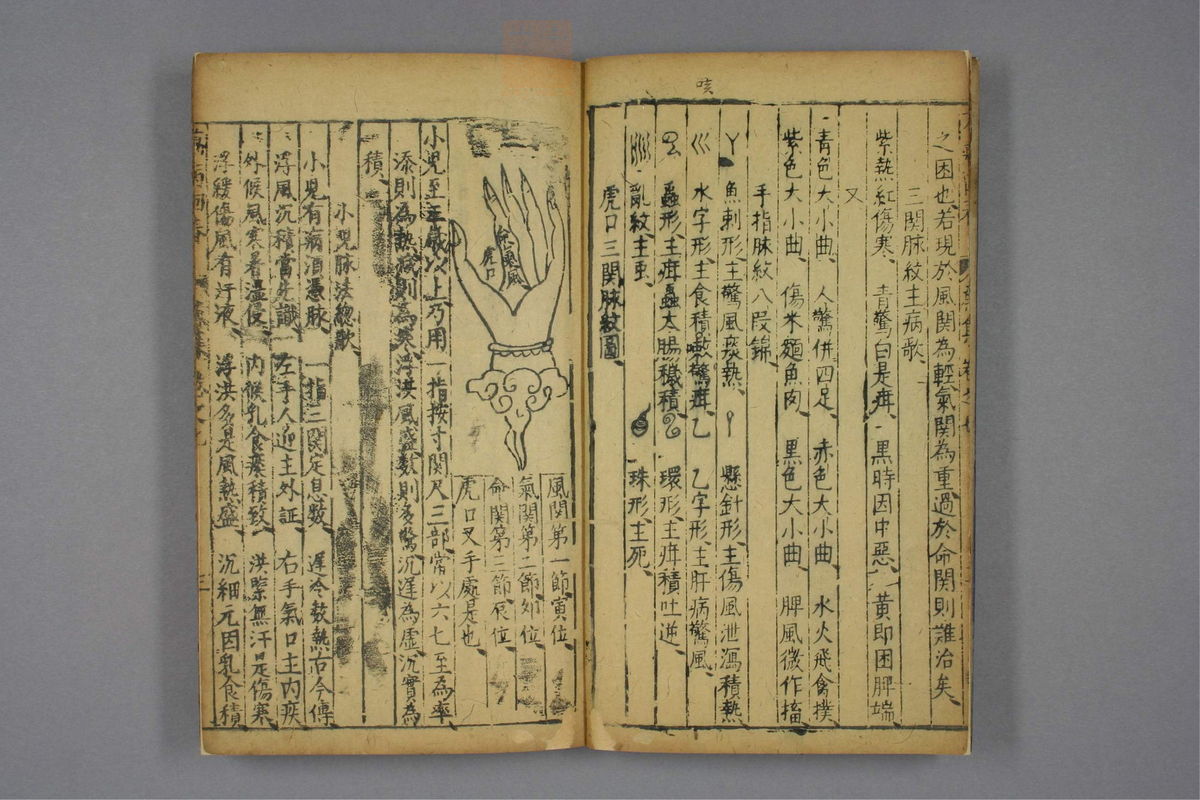 咳
之困也若現於風関為輕氣関為重過於命関則難治矣
三関脉紋主病歌
紫熱紅傷寒 青驚白是疳 黒時因中惡 黃即困脾端
又
青色大小曲 人驚併四足 赤色大小曲 水火飛禽撲
紫色大小曲 傷米麵魚肉 黒色大小曲 脾風微作搐
手指脉紋八段錦
魚刺形主驚風痰熱 懸針形主傷風泄瀉積熱
水字形主食積咳驚疳 乙字形主肝病驚風
蟲形主疳蟲大腸穢積 環形主疳積吐逆
亂紋主虫 珠形主死
虎口三関脉紋圖
命氣風
虎口
風関第一節寅位
氣関第二節卯位
命関第三節辰位
虎口叉手處是也
小児至三歲以上乃用一指按寸関尺三部常以六七至為率
添則為熱減則為寒浮洪風盛数則多驚沉遲為虛沉實為
積
小児脉法總歌
小児有病酒憑脉 一指三関定息数 遲冷数熱古今傳
浮風沉積當先識 左手人迎主外証 右手氣口主内疾
外候風寒暑溫侵 内候乳食痰積致 洪緊無汗是傷寒
浮緩傷風有汗液 浮洪多是風熱盛 沉細元因乳食積